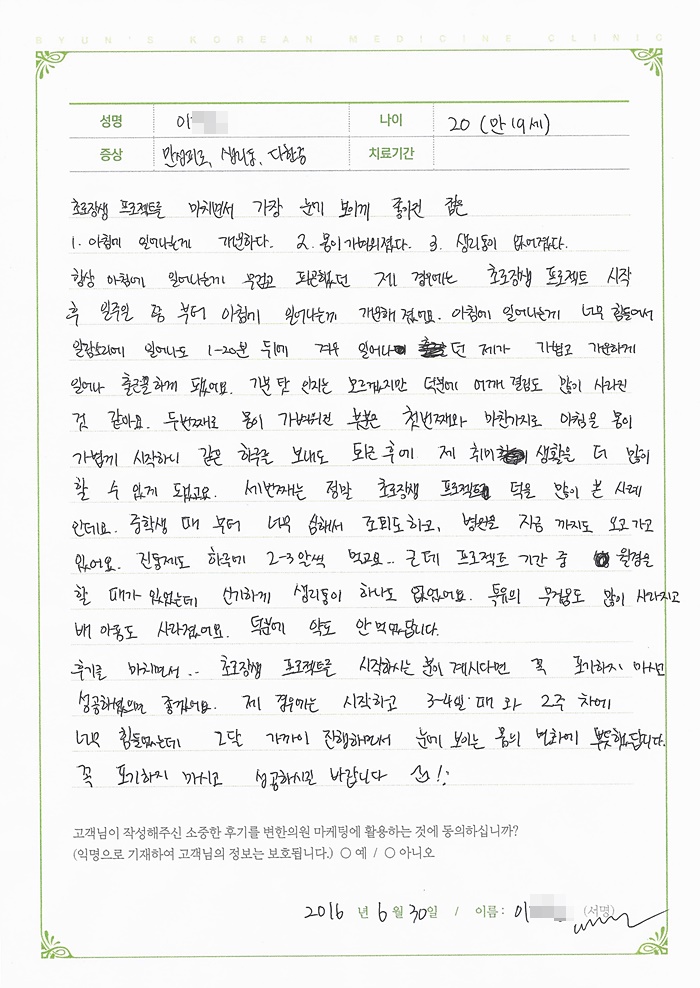 BYUN'S KOREAN MEDICINE CLINIC
성명 이 나이 20 (만 19세)
증상 만성피로, 생리통, 다한증 치료기간
초로장생 프로젝트를 마치면서 가장 눈에 보이게 좋아진 점은
1. 아침에 일어나는게 개운하다. 2. 몸이 가벼워졌다. 3. 생리통이 없어졌다.
항상 아침에 일어나는게 무겁고 피곤했던 제 경우에는 초로장생 프로젝트 시작
후 일주일 쯤 부터 아침에 일어나는게 개운해 졌어요. 아침에 일어나는게 너무 힘들어서
알람소리에 일어나도 1-20분 뒤에 겨우 일어나던 제가 가볍고 개운하게
일어나 출근을 하게 됐어요. 기분 탓 인지는 모르겠지만 덕분에 어깨 결림도 많이 사라진
것 같아요. 두번째로 몸이 가벼워진 부분은 첫번째와 마찬가지로 아침을 몸이
가볍게 시작하니 같은 하루를 보내도 퇴근 후에 제 취미 생활을 더 많이
할 수 있게 됐고요. 세번째는 정말 초로장생 프로젝트 덕을 많이 본 사례
인데요. 중학생 때 부터 너무 심해서 조퇴도 하고, 병원을 지금 까지도 오고 가고
있어요. 진통제도 하루에 2-3알씩 먹고요.. 근데 프로젝트 기간 중 월경을
할 때가 있었는데 신기하게 생리통이 하나도 없었어요. 특유의 무거움도 많이 사라지고
배 아픔도 사라졌어요. 덕분에 약도 안 먹었답니다.
후기를 마치면서.. 초로장생 프로젝트를 시작하시는 분이 계시다면 꼭 포기하지 마시고
성공하셨으면 좋겠어요. 제 경우에는 시작하고 3-4일 때와 2주 차에
너무 힘들었는데 2달 가까이 진행하면서 눈에 보이는 몸의 변화에 뿌듯했답니다.
꼭 포기하지 마시고 성공하시길 바랍니다 !!
고객님이 작성해주신 소중한 후기를 변한의원 마케팅에 활용하는 것에 동의하십니까?
(익명으로 기재하여 고객님의 정보는 보호됩니다.) ○ 예 / ○ 아니오
2016 년 6 월 30 일 / 이름 : 이 (서명)